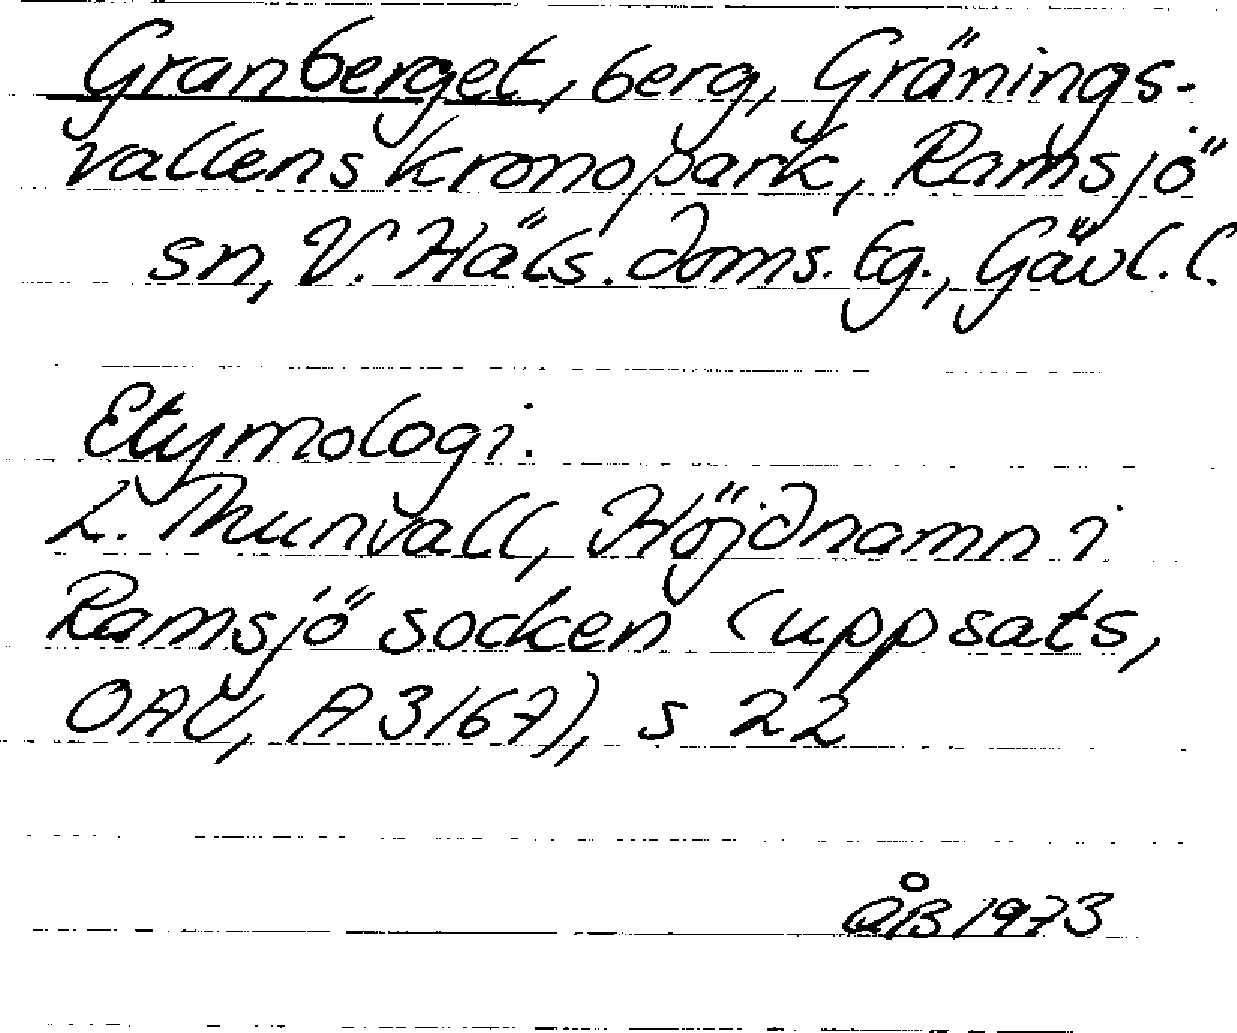 Granberget, berg, Gränings-
vallens kronopark, Ramsjö
sn, V. Häls. doms. tg., Gävl. l.
Etymologi.
L. Thunvall, Höjdnamn i
Ramsjö socken (uppsats,
OAU, A 3167), s 22
ÅB 1973